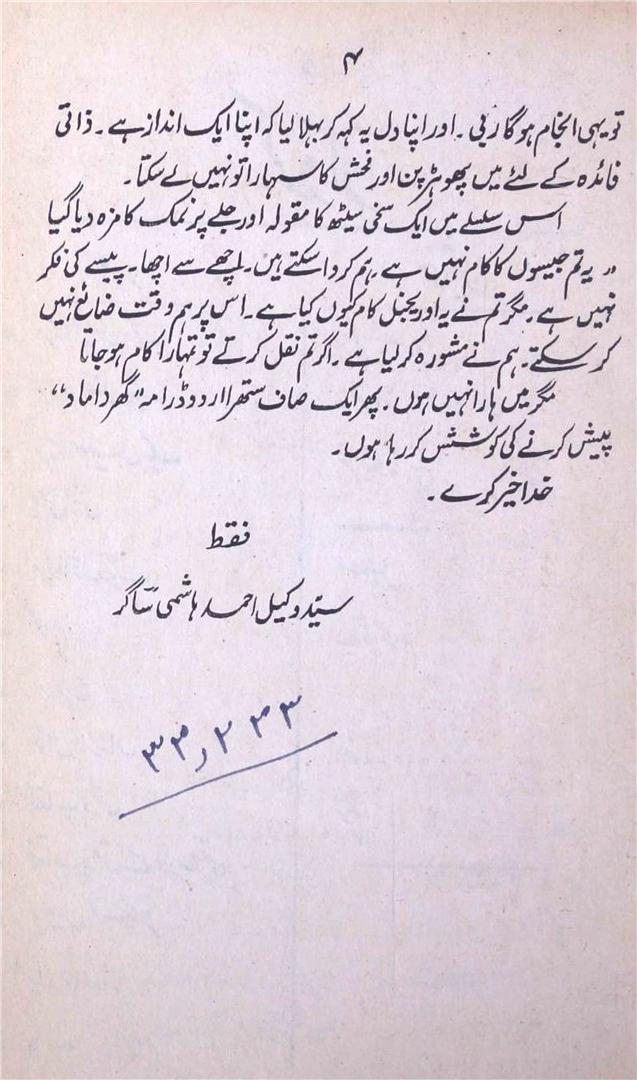 ۴
تو یہی انجام ہوگا رہی ۔ اور اپنا دل یہ کہہ کر بہلا لیا کہ اپنا ایک انداز ہے ۔ ذاتی
فائدہ کے لئے میں پھوہڑ پن اور فحش کا سہارا تو نہیں لے سکتا ۔
اس سلسلے میں ایک سخی سیٹھ کا مقولہ اور جلے پر نمک کا مزہ دیا گیا
" یہ تم جیسوں کا کام نہیں ہے ۔ ہم کروا سکتے ہیں ۔ اچھے سے اچھا ۔ پیسے کی فکر
نہیں ہے ۔ مگر تم نے یہ اوریجنل کام کیوں کیا ہے ۔ اس پر ہم وقت ضائع نہیں
کر سکتے ۔ ہم نے مشورہ کر لیا ہے ۔ اگر تم نقل کرتے تو تمہارا کام ہو جاتا
مگر میں ہارا نہیں ہوں ۔ پھر ایک صاف ستھرا اردو ڈرامہ "گھر داماد"
پیش کرنے کی کوشش کر رہا ہوں ۔
خدا خیر کرے ۔
فقط
سید وکیل احمد ہاشمی ساگر